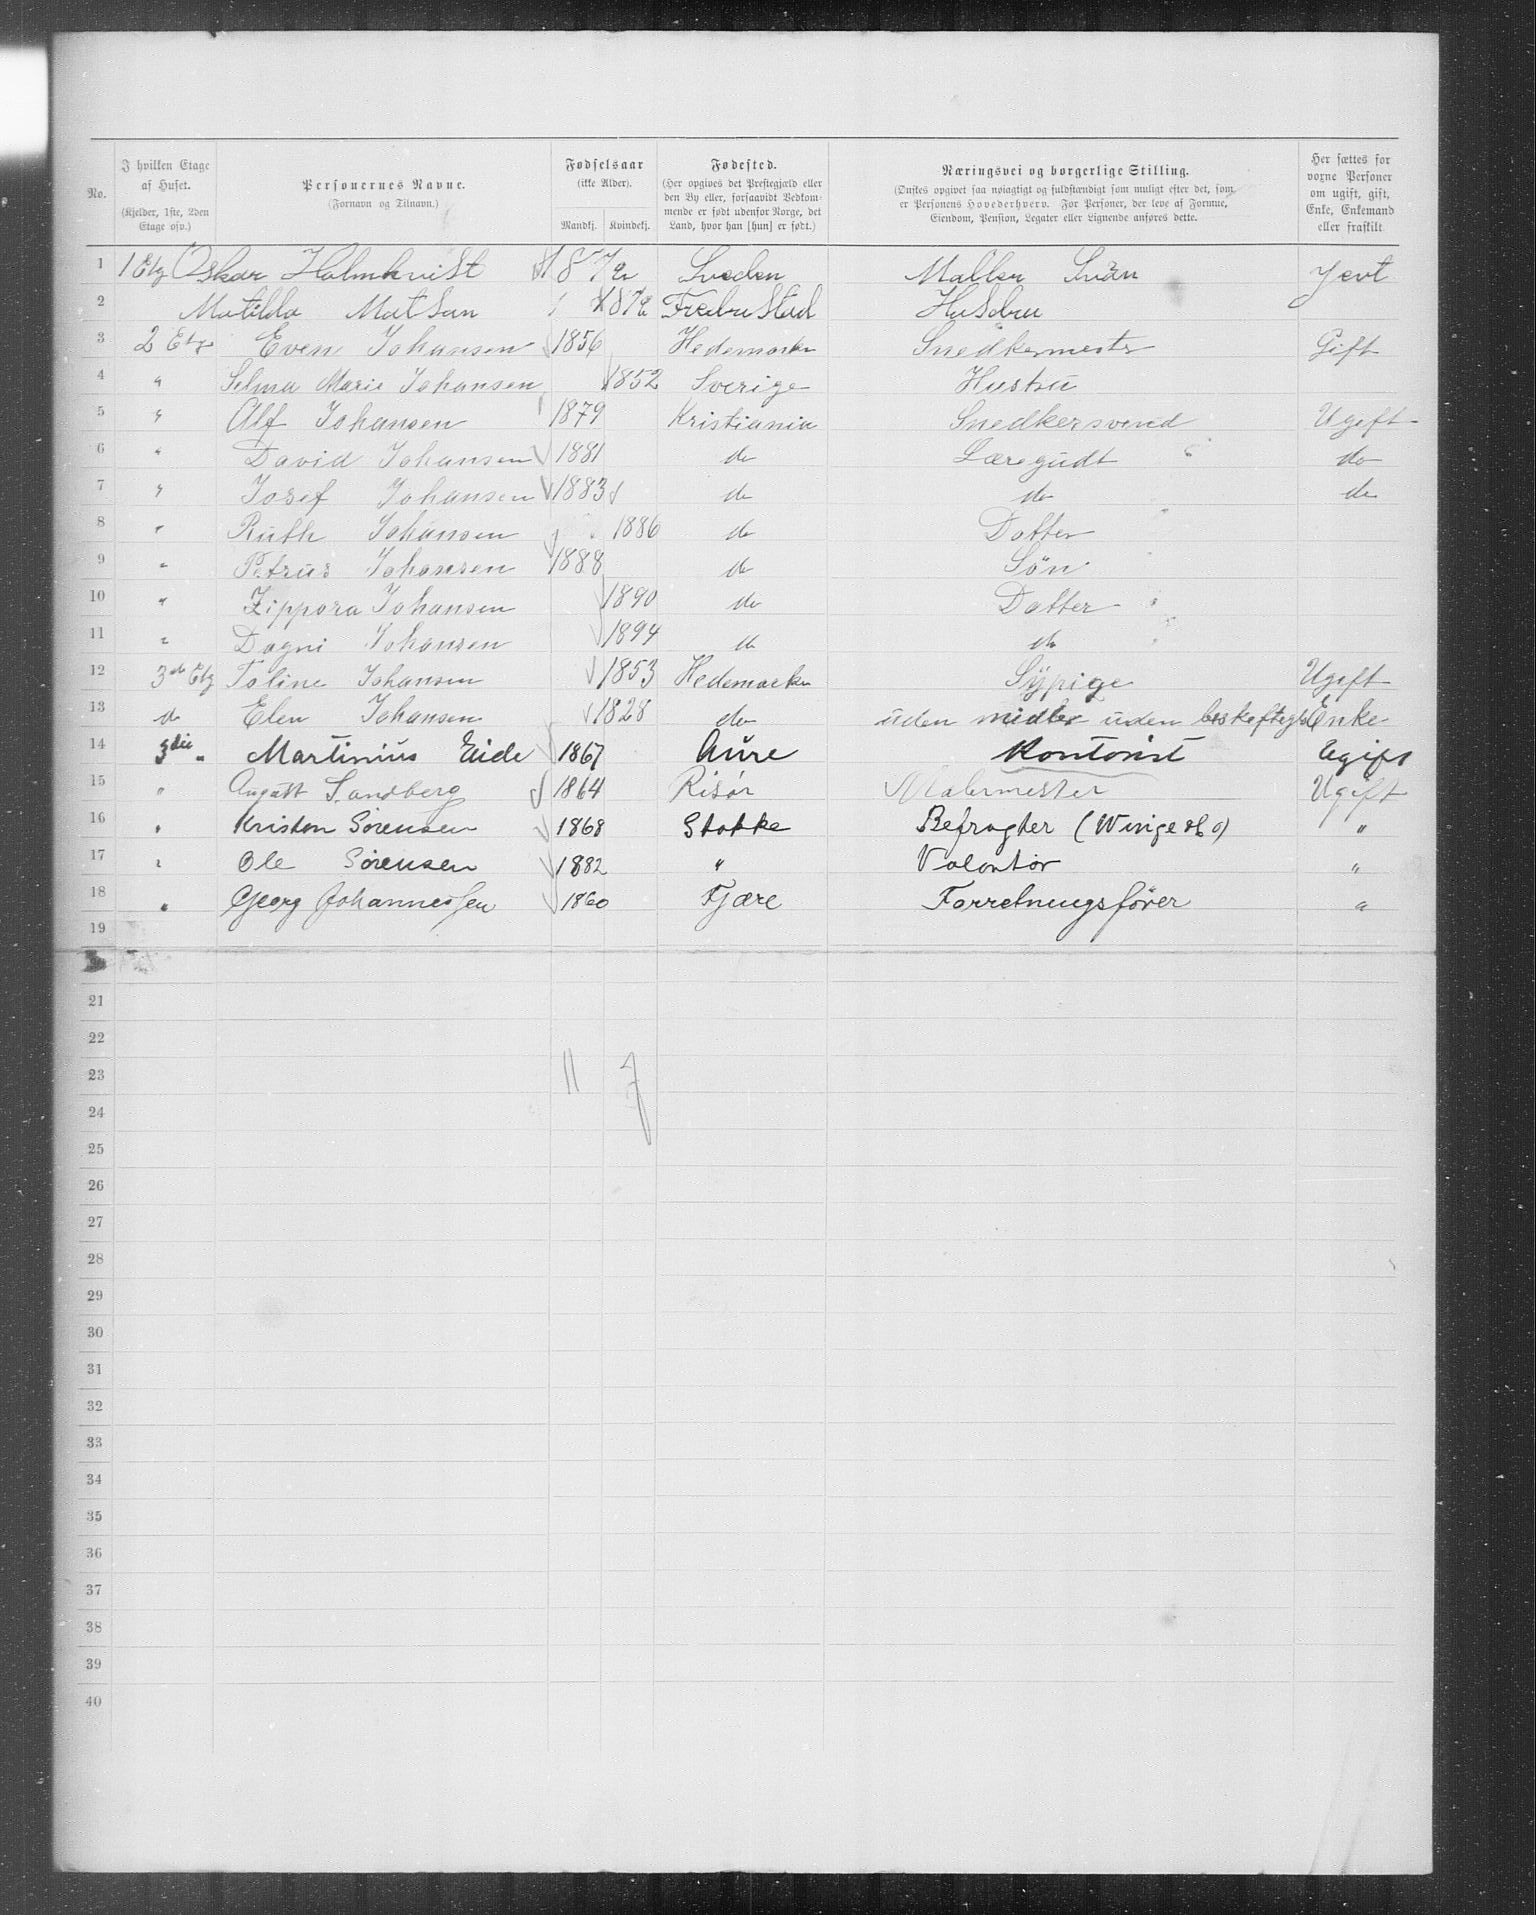 No.
I hvilken Etage af Huset. (Kjelder, 1ste, 2den Etage osv.)
Personernes Navne. (Fornavn og Tilnavn.)
Fødselsaar (ikke Alder). Mandkj. Kvindekj.
Fødested. (Her opgives det Prestegjæld eller den By eller, forsaavidt Vedkommende er født udenfor Norge, det Land, hvor han [hun] er født.)
Næringsvei og borgerlige Stilling. (Ønskes opgivet saa nøiagtigt og fuldstændigt som muligt efter det, som er Personens Hovederhverv. For Personer, der leve af Formue, Eiendom, Pension, Legater eller Lignende anføres dette.
Her sættes for vorne Personer om ugift, gift, Enke, Enkemand eller fraskilt
1 1 Etg Oskar Holmkvist Sveden Maller Svän Jevt
2 Matilda Matsan Fredrustad Husdru
3 2 Etg Even Johansen 1856 Hedemarken Snedkermester Gift
4 " Selma Marie Johansen 1852 Sverige Hustru
5 " Alf Johansen 1879 Kristiania Snedkersvend Ugift
6 " David Johansen 1881 do Læregudt do
7 " Josef Johansen 1883 do do do
8 " Ruth Johansen 1886 do Datter
9 " Petrus Johansen 1888 do Sön
10 " Zippora Johansen 1890 do Datter
11 " Dagni Johansen 1894 do do
12 3de Etg Toline Johansen 1853 Hedemarken Sÿpige Ugift
13 do Elen Johansen 1828 do uden midler uden beskeftigls Enke
14 3die " Martinius Eide 1867 Aure Kontorist Ugift
15 " August Sandberg 1864 Risör Malermester Ugift
16 " Kristen Sörensen 1868 Stokke Befragter (Winge & Co) "
17 " Ole Sörensen 1882 " Volontör "
18 " Georg Johannessen 1860 Fjære Forretningsförer "
19
21
22
23 11 7
24
25
26
27
28
29
30
31
32
33
34
35
36
37
38
39
40